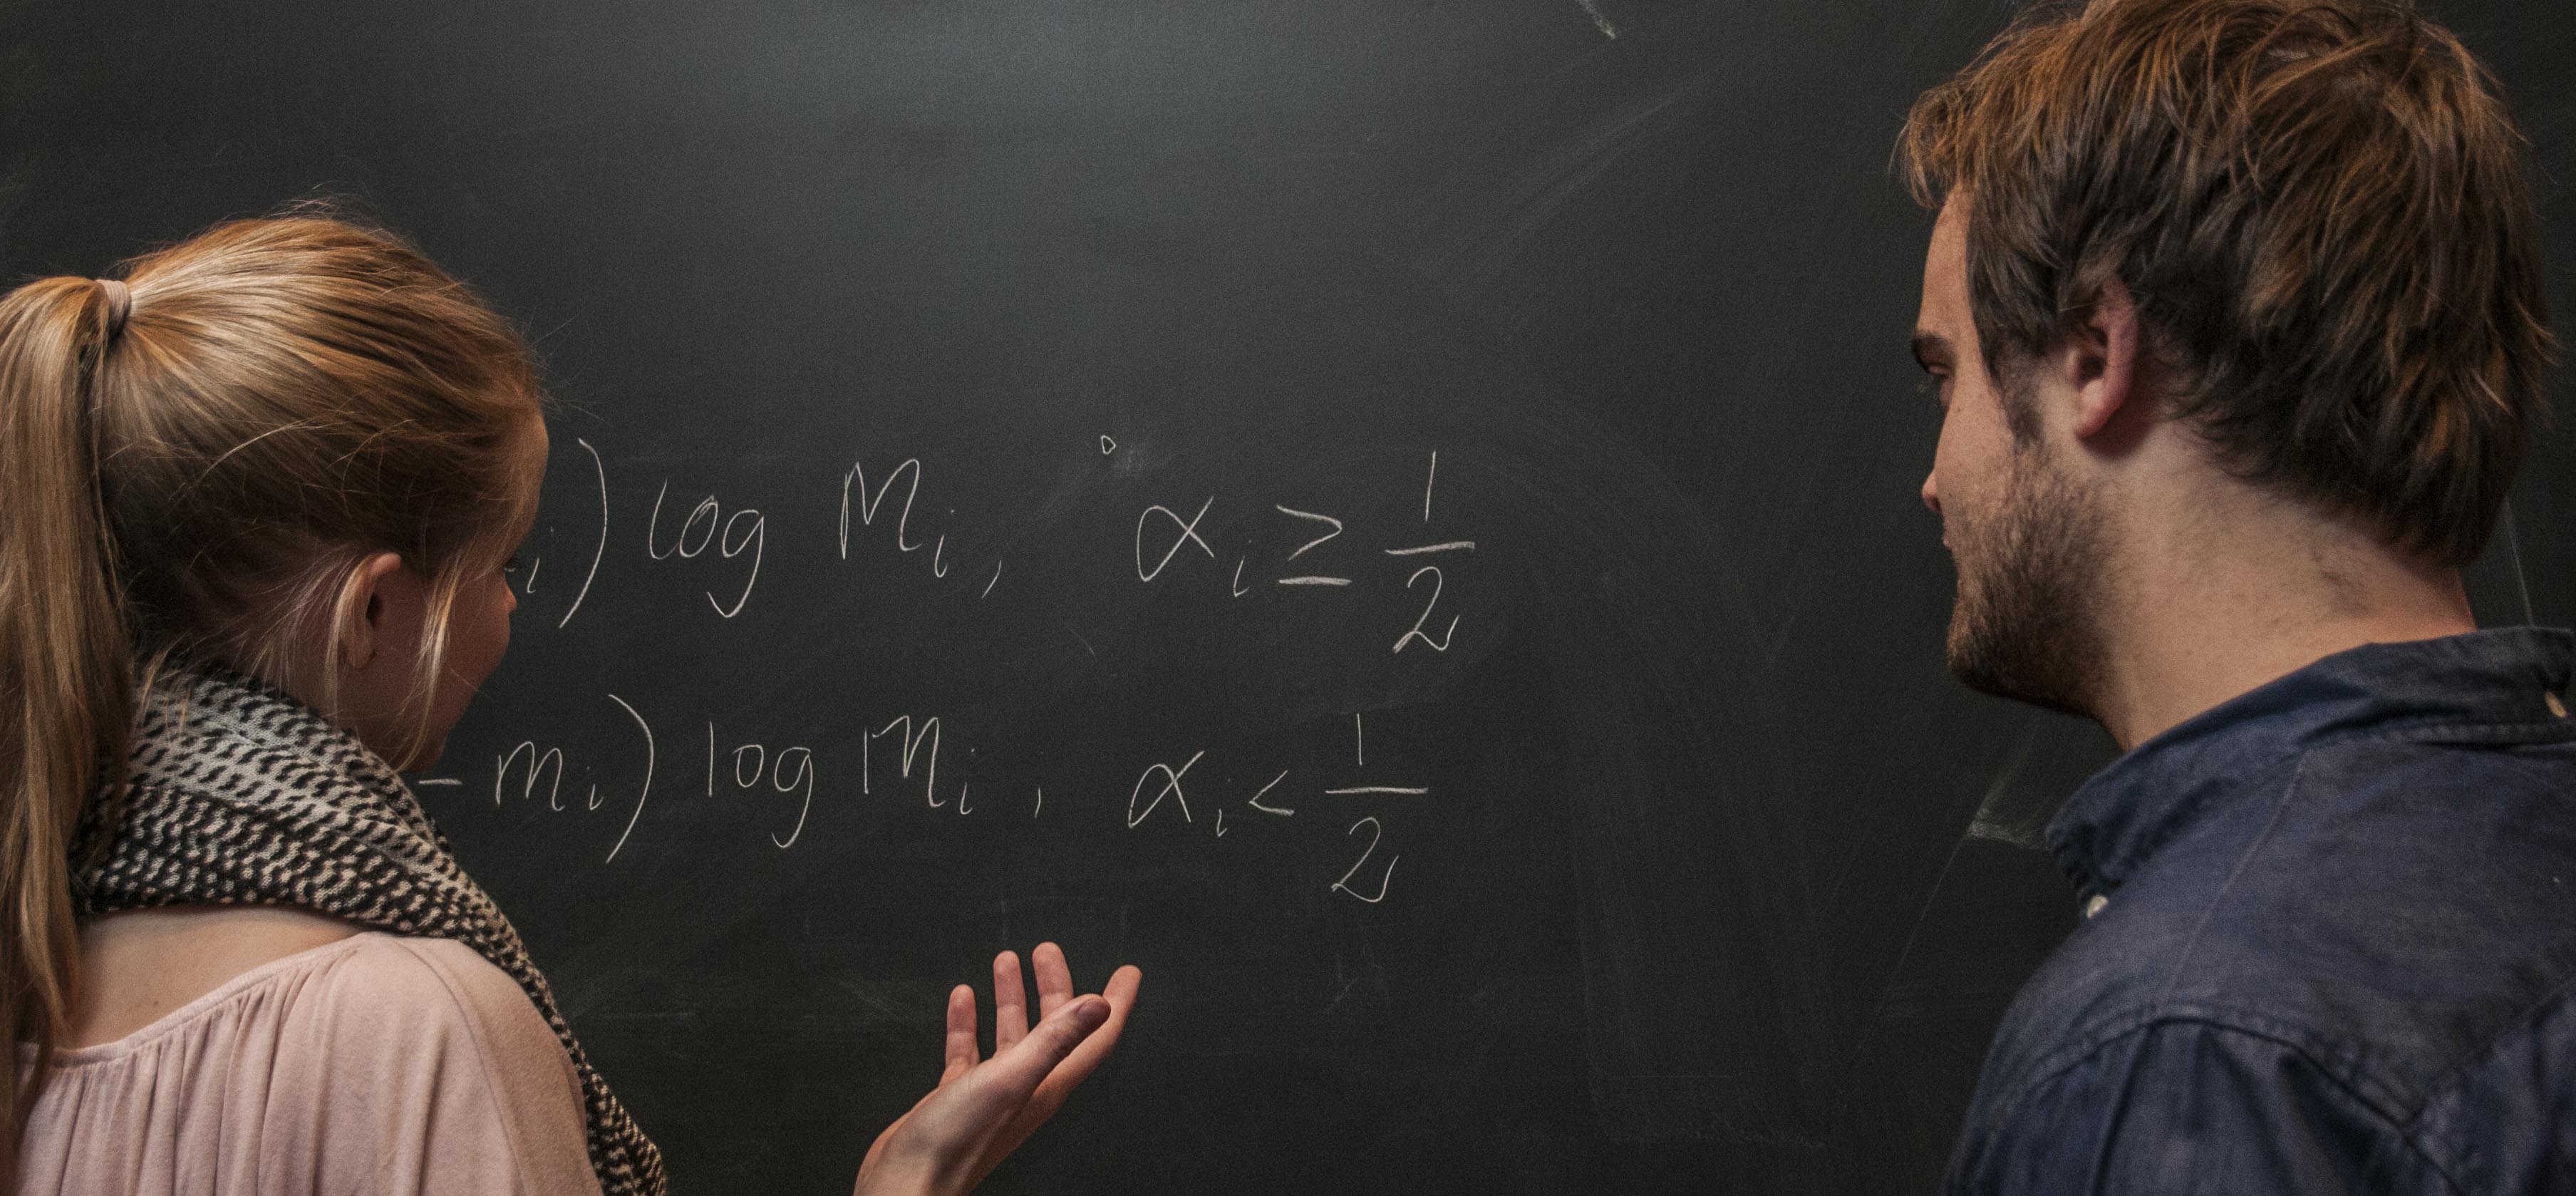 i) log Mi, αi ≥ 1/2
- mi) log Mi, αi < 1/2